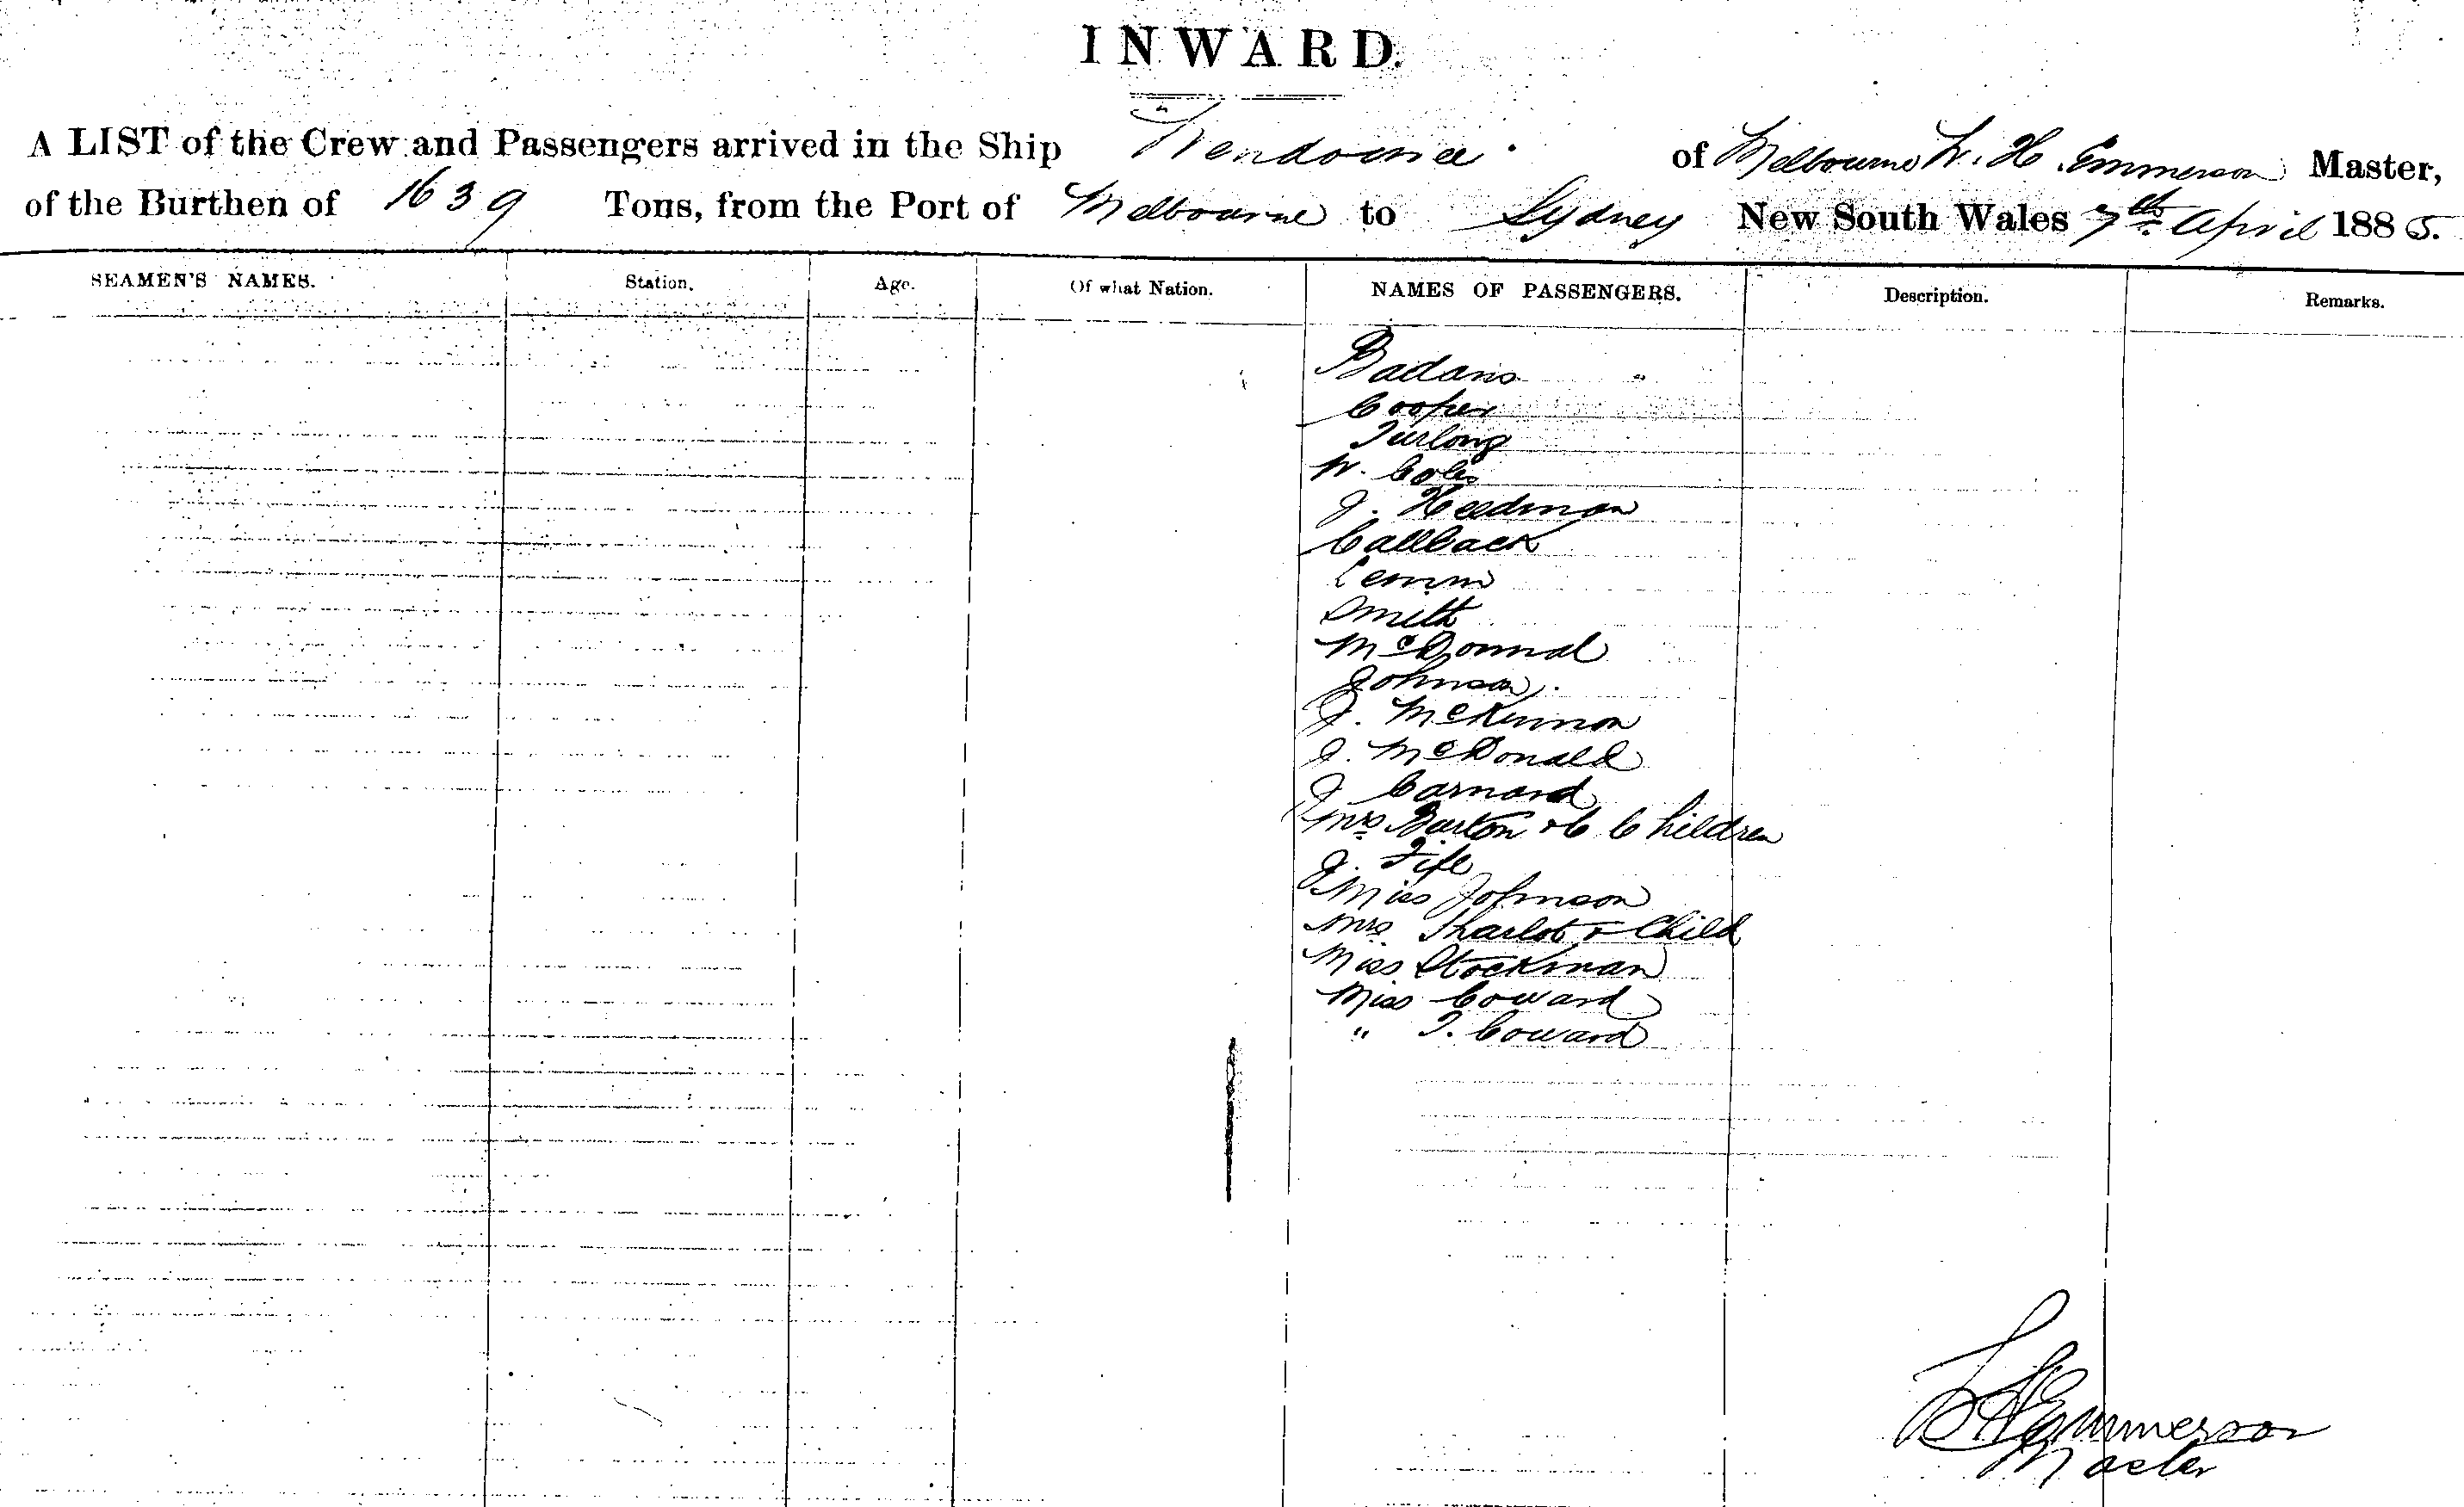 INWARD.
A LIST of the Crew and Passengers arrived in the Ship Wendouree of Melbourne W. H. Emmerson Master,
of the Burthen of 1639 Tons, from the Port of Melbourne to Sydney New South Wales 7th April 1885.
SEAMEN'S NAMES. Station. Age. Of what Nation. NAMES OF PASSENGERS. Description. Remarks.
Badans
Cooper
Furlong
W. Coles
J. Heedman
Callback
Lemm
Smith
McDonnal
Johnson
J. McKinnon
J. McDonald
J Barnard
Mrs Burton & 6 Children
J. Fife
Miss Johnson
Mrs Sharlot & Child
Miss Stockman
Miss Coward
" T. Coward
Emmerson
Master